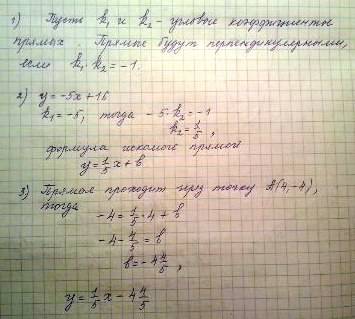 1) Пусть k₁ и k₂ - угловые коэффициенты
прямых. Прямые будут перпендикулярными,
если k₁·k₂ = -1.
2) y = -5x + 16
k₁ = -5, тогда -5·k₂ = -1
k₂ = 1/5,
формула искомой прямой
y = 1/5 x + b
3) Прямая проходит через точку A(4,-4),
тогда
-4 = 1/5·4 + b
-4 - 4/5 = b
b = -4 4/5,
y = 1/5 x - 4 4/5